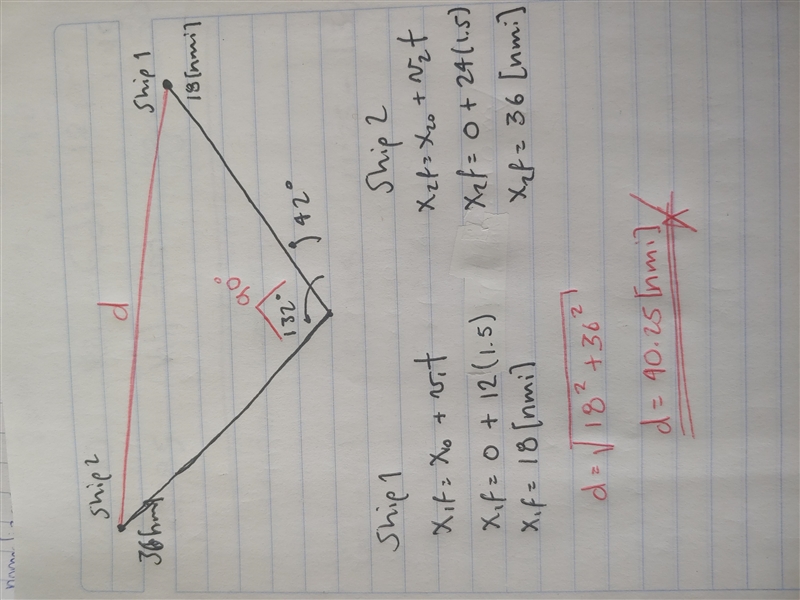 Ship 2
Ship 1
d
36[nmi]
18[nmi]
90°
132°
42°
Ship 1
x₁f = x₁₀ + v₁t
x₁f = 0 + 12(1.5)
x₁f = 18 [nmi]
Ship 2
x₂f = x₂₀ + v₂t
x₂f = 0 + 24(1.5)
x₂f = 36 [nmi]
d = √18² + 36²
d = 40.25 [nmi]